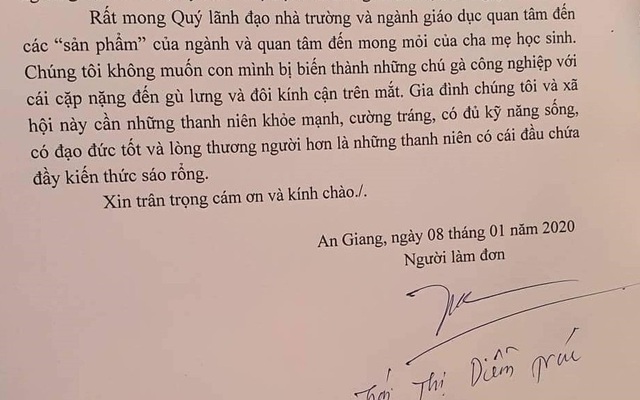 Rất mong Quý lãnh đạo nhà trường và ngành giáo dục quan tâm đến
các “sản phẩm” của ngành và quan tâm đến mong mỏi của cha mẹ học sinh.
Chúng tôi không muốn con mình bị biến thành những chú gà công nghiệp với
cái cặp nặng đến gù lưng và đôi kính cận trên mắt. Gia đình chúng tôi và xã
hội này cần những thanh niên khỏe mạnh, cường tráng, có đủ kỹ năng sống,
có đạo đức tốt và lòng thương người hơn là những thanh niên có cái đầu chứa
đầy kiến thức sáo rỗng.
Xin trân trọng cám ơn và kính chào./.
An Giang, ngày 08 tháng 01 năm 2020
Người làm đơn
Thị Diễm